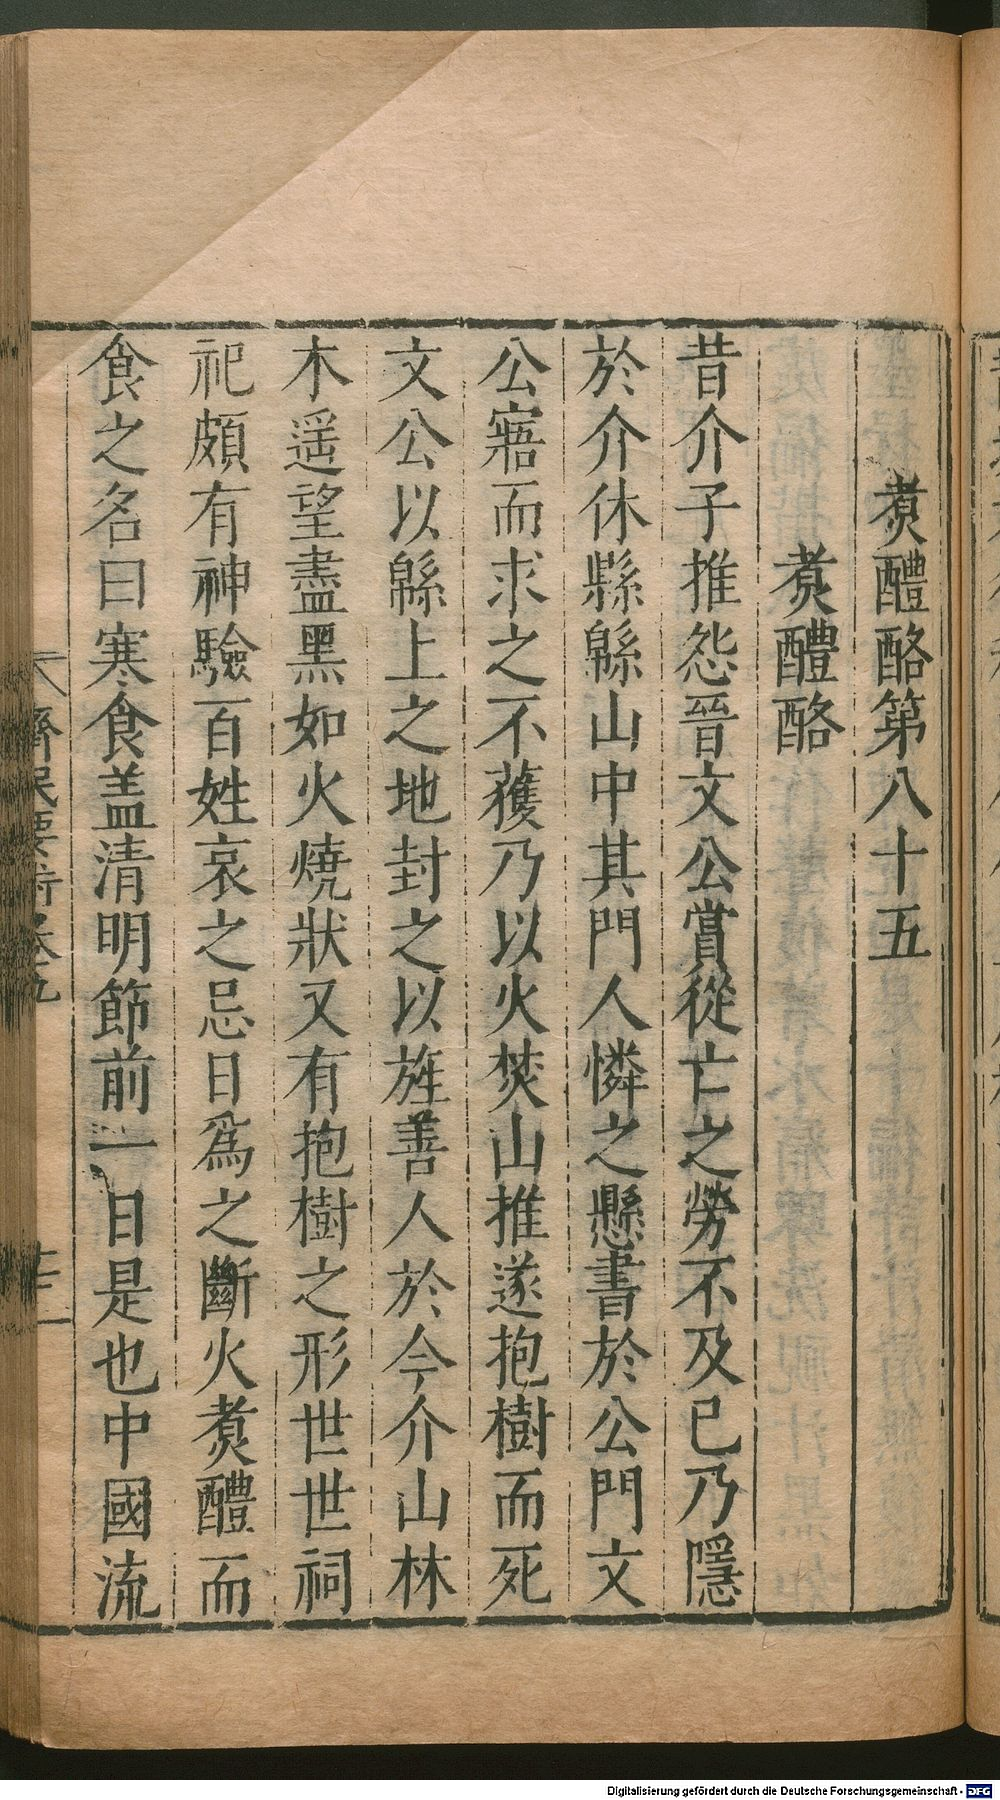 煑醴酪第八十五
煑醴酪
昔介子推怨晉文公賞從亡之勞不及已乃隱
於介休縣緜山中其門人憐之懸書於公門文
公寤而求之不獲乃以火焚山推遂抱樹而死
文公以緜上之地封之以旌善人於今介山林
木遥望盡黑如火燒狀又有抱樹之形世世祠
祀頗有神驗百姓哀之忌日爲之斷火煑醴而
食之名曰寒食盖清明節前一日是也中國流
齊民要術卷九
Digitalisierung gefördert durch die Deutsche Forschungsgemeinschaft - DFG